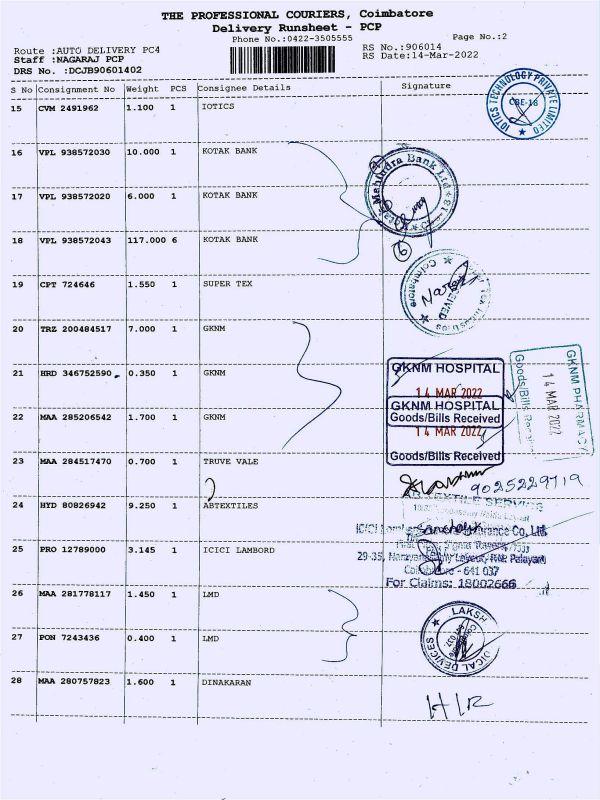 THE PROFESSIONAL COURIERS, Coimbatore
Delivery Runsheet - PCP
Phone No.:0422-3505555
Page No.:2
Route :AUTO DELIVERY PC4
RS No.:906014
Staff :NAGARAJ PCP
RS Date:14-Mar-2022
DRS No. :DCJB90601402
S No Consignment No Weight PCS Consignee Details Signature
15 CVM 2491962 1.100 1 IOTICS
IOTICS TECHNOLOGY PRIVATE LIMITED
CBE-18
16 VPL 938572030 10.000 1 KOTAK BANK
Mahindra Bank Ltd
17 VPL 938572020 6.000 1 KOTAK BANK
18 VPL 938572043 117.000 6 KOTAK BANK
6
19 CPT 724646 1.550 1 SUPER TEX
Coimbatore
RECEIVED
20 TRZ 200484517 7.000 1 GKNM
21 HRD 346752590 0.350 1 GKNM
GKNM HOSPITAL
14 MAR 2022
GKNM HOSPITAL
Goods/Bills Received
14 MAR 2022
Goods/Bills Received
GKNM PHARMACY
14 MAR 2022
Goods/Bills
22 MAA 285206542 1.700 1 GKNM
23 MAA 284517470 0.700 1 TRUVE VALE
9025229719
24 HYD 80826942 9.250 1 ABTEXTILES
AB TEXTILE SERVICE
25 PRO 12789000 3.145 1 ICICI LAMBORD
ICICI Co. Ltd.
29-35, Layout, Palayam
Coimbatore - 641 037
For Claims: 18002666
26 MAA 281778117 1.450 1 LMD
27 PON 7243436 0.400 1 LMD
LAKSH
DEVICES
28 MAA 280757823 1.600 1 DINAKARAN